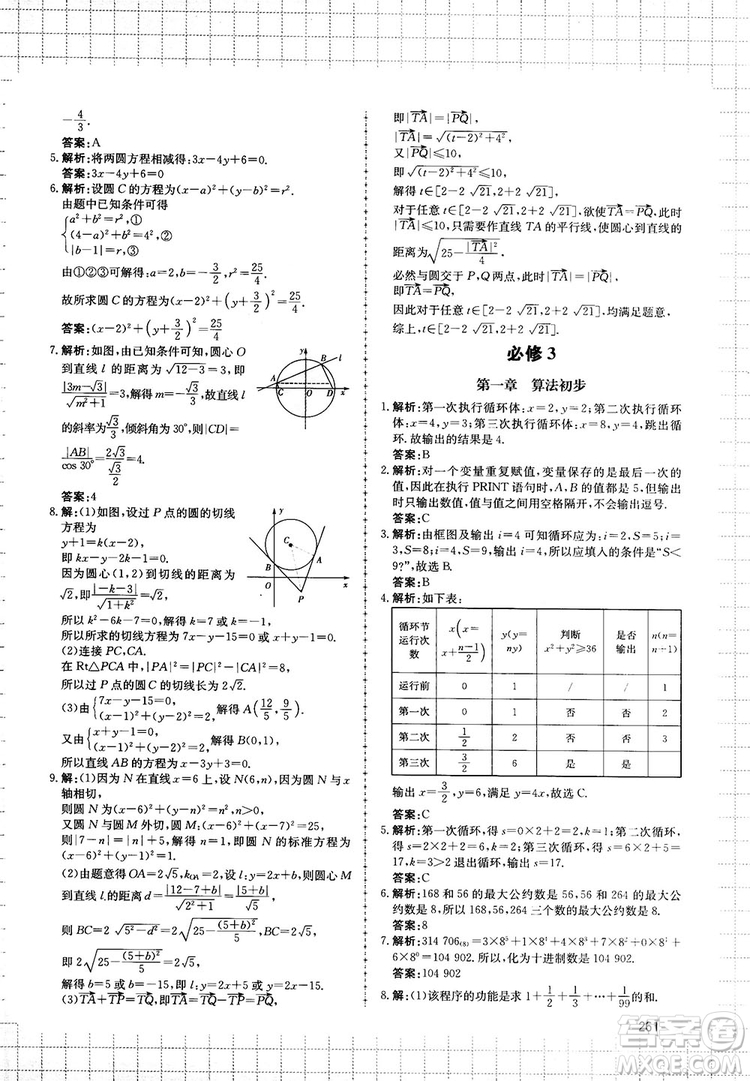 -4/3.
答案:A
5. 解析:将两圆方程相减得:3x-4y+6=0.
答案:3x-4y+6=0.
6. 解析:设圆 C 的方程为(x-a)²+(y-b)²=r².
由题中已知条件可得
{a²+b²=r²,①
(4-a)²+b²=r²,②
|b-1|=r,③
由①②③可解得 a=2,b=-3/2,r²=25/4.
故所求圆 C 的方程为(x-2)²+(y+3/2)²=25/4.
答案:(x-2)²+(y+3/2)²=25/4
7. 解析:如图,由已知条件可知,圆心 O
到直线 l 的距离为√(12-3)=3,即
|3m-√3|/√(m²+1)=3,解得 m=-√3/3,所以直线 l
的斜率为√3/3,倾斜角为 30°,则|CD|=
|AB|/cos 30°=2√3/(√3/2)=4.
答案:4
y
B
l
A
C
O
D
x
8. 解:(1)如图,设过 P 点的圆的切线
方程为
y+1=k(x-2),
即 kx-y-2k-1=0.
因为圆心(1,2)到切线的距离为
√2,即|-k-3|/√(1+k²)=√2,
k²-6k-7=0,解得 k=7 或 k=-1,
所以所求的切线方程为 7x-y-15=0 或 x+y-1=0.
(2)连接 PC,CA.
在 Rt△PCA 中,|PA|²=|PC|²-|CA|²=8,
所以过 P 点的圆 C 的切线长为 2√2.
(3)由{7x-y-15=0,
(x-1)²+(y-2)²=2,解得 A(12/5,9/5).
又由{x+y-1=0,
(x-1)²+(y-2)²=2,解得 B(0,1),
所以直线 AB 的方程为 x-3y+3=0.
y
C
A
B
O
x
P
9. 解:(1)因为 N 在直线 x=6 上,设 N(6,n),因为与 x
轴相切,
则圆 N 为(x-6)²+(y-n)²=n²,n>0,
又圆 N 与圆 M 外切,圆 M:(x-6)²+(y-7)²=25,
则|7-n|=|n|+5,解得 n=1,即圆 N 的标准方程为
(x-6)²+(y-1)²=1.
(2)由题意得 OA=2√5,k_OA=2,设 l:y=2x+b,则圆心 M
到直线 l 的距离 d=|12-7+b|/√(2²+1)=|5+b|/√5,
则 BC=2√(5²-d²)=2√(25-(5+b)²/5),BC=2√5,
即 2√(25-(5+b)²/5)=2√5,
解得 b=5 或 b=-15,即 l:y=2x+5 或 y=2x-15.
(3)TA+TP=TQ,即TA=TQ-TP=PQ,
即|TA|=|PQ|,
|TA|=√((t-2)²+4²),
又|PQ|≤10,
即√((t-2)²+4²)≤10,
解得 t∈[2-2 √21,2+2 √21],
对于任意 t∈[2-2 √21,2+2 √21],欲使TA=PQ,此时
|TA|≤10,只需要作直线 TA 的平行线,使圆心到直线的
距离为√(25-|TA|²/4),
必然与圆交于 P,Q 两点,此时|TA|=|PQ|,
即TA=PQ,
因此对于任意 t∈[2-2 √21,2+2 √21],均满足题意,
综上,t∈[2-2 √21,2+2 √21].
必修 3
第一章 算法初步
1. 解析:第一次执行循环体:x=2,y=2;第二次执行循环
体:x=4,y=3;第三次执行循环体:x=8,y=4,跳出循
环.故输出的结果是 4.
答案:B
2. 解析:对一个变量重复赋值,变量保存的是最后一次的
值,因此在执行 PRINT 语句时,A,B 的值都是 5,另外
我们只输出数值,值与值之间用空格隔开,不会输出逗号.
答案:C
3. 解析:由框图及输出 i=4 可知循环应为:i=2,S=5;i=
3,S=8;i=4,S=9,输出 i=4,所以应填入的条件是“S<
9?”,故选 B.
答案:B
4. 解析:如下表:
循环节运行次数 x(x=x+(n-1)/2) y(y=ny) 判断x²+y²≥36 是否输出 n(n=n+1)
运行前 0 1 / / 1
第一次 0 1 否 否 2
第二次 1/2 2 否 否 3
第三次 3/2 6 是 是
输出 x=3/2,y=6,满足 y=4x,故选 C.
答案:C
5. 解析:第一次循环,得 s=0×2+2=2,k=1;第二次循
环,得 s=2×2+2=6,k=2;第三次循环,得 s=6×2+5=
17,k=3>2,此时不满足循环条件,退出循环,输出 s=17.
答案:C
6. 解析:168 和 56 的最大公约数是 56,56 和 264 的最大公
约数是 8,所以 168,56,264 三个数的最大公约数是 8.
答案:8
7. 解析:314 706₍₈₎=3×8⁵+1×8⁴+4×8³+7×8²+0×8¹
+6×8⁰=104 902,所以化为十进制数是 104 902.
答案:104 902
8. 解:(1)该程序的功能是求 1+1/2+1/3+…+1/99的和.
251
答案圈
MXQE.COM